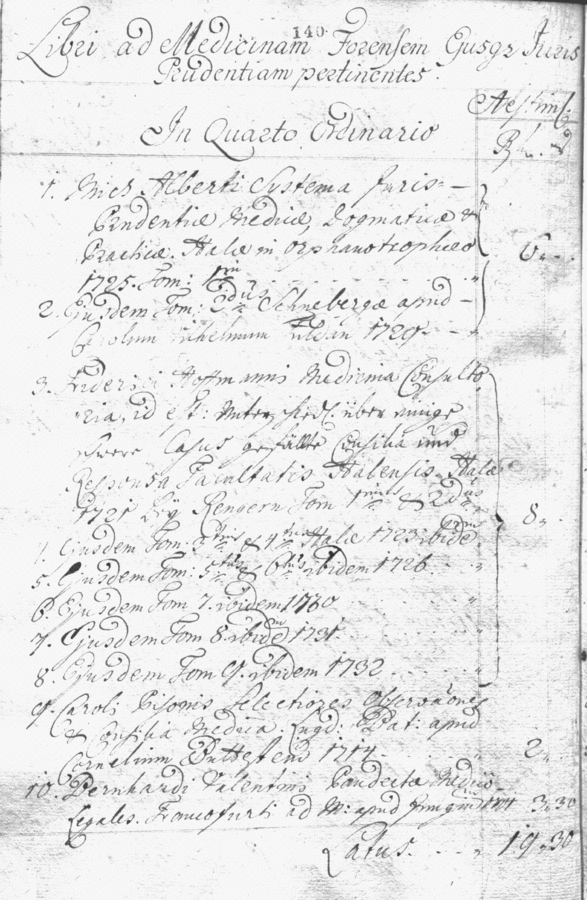 140
Libri ad Medicinam Forensem Ejusqz Juris
Prudentiam pertinentes.
Aestim:
In Quarto Ordinario
1. Mich Alberti Systema Juris-
Prudentiæ Medicæ, Dogmaticæ &
Practicæ. Halæ in Orphanotrophæo
1725. Tom: 1m
6 „
2. Ejusdem Tom: 2dus Schnebergæ apud
Carolum Wilhelmum Fuldam 1729
3. Friderici Hoffmanni Medicina Consulto
ria, id est: Unterschiedl. über einige
schwere Casus gefällte Consilia und
Responsa Facultatis Halensis. Halæ
1721 Tom 1mus & 2dus
8 „
4. Ejusdem Tom: 3tius & 4tus Halæ 1723 ibidem
5. Ejusdem Tom: 5tus & 6tus ibidem 1726
6. Ejusdem Tom 7. ibidem 1730
7. Ejusdem Tom 8. ibidem 1731
8. Ejusdem Tom 9. ibidem 1732
9. Caroli Pisonis Selectiores Observationes
& Consilia Medica. Lugd. Bat: apud
Cornelium Buttestein 1714
2 „
10. Bernhardi Valentini Pandectæ Medico
Legales. Francofurti ad M: apud 3 „ 30
Latus. 19 „ 30